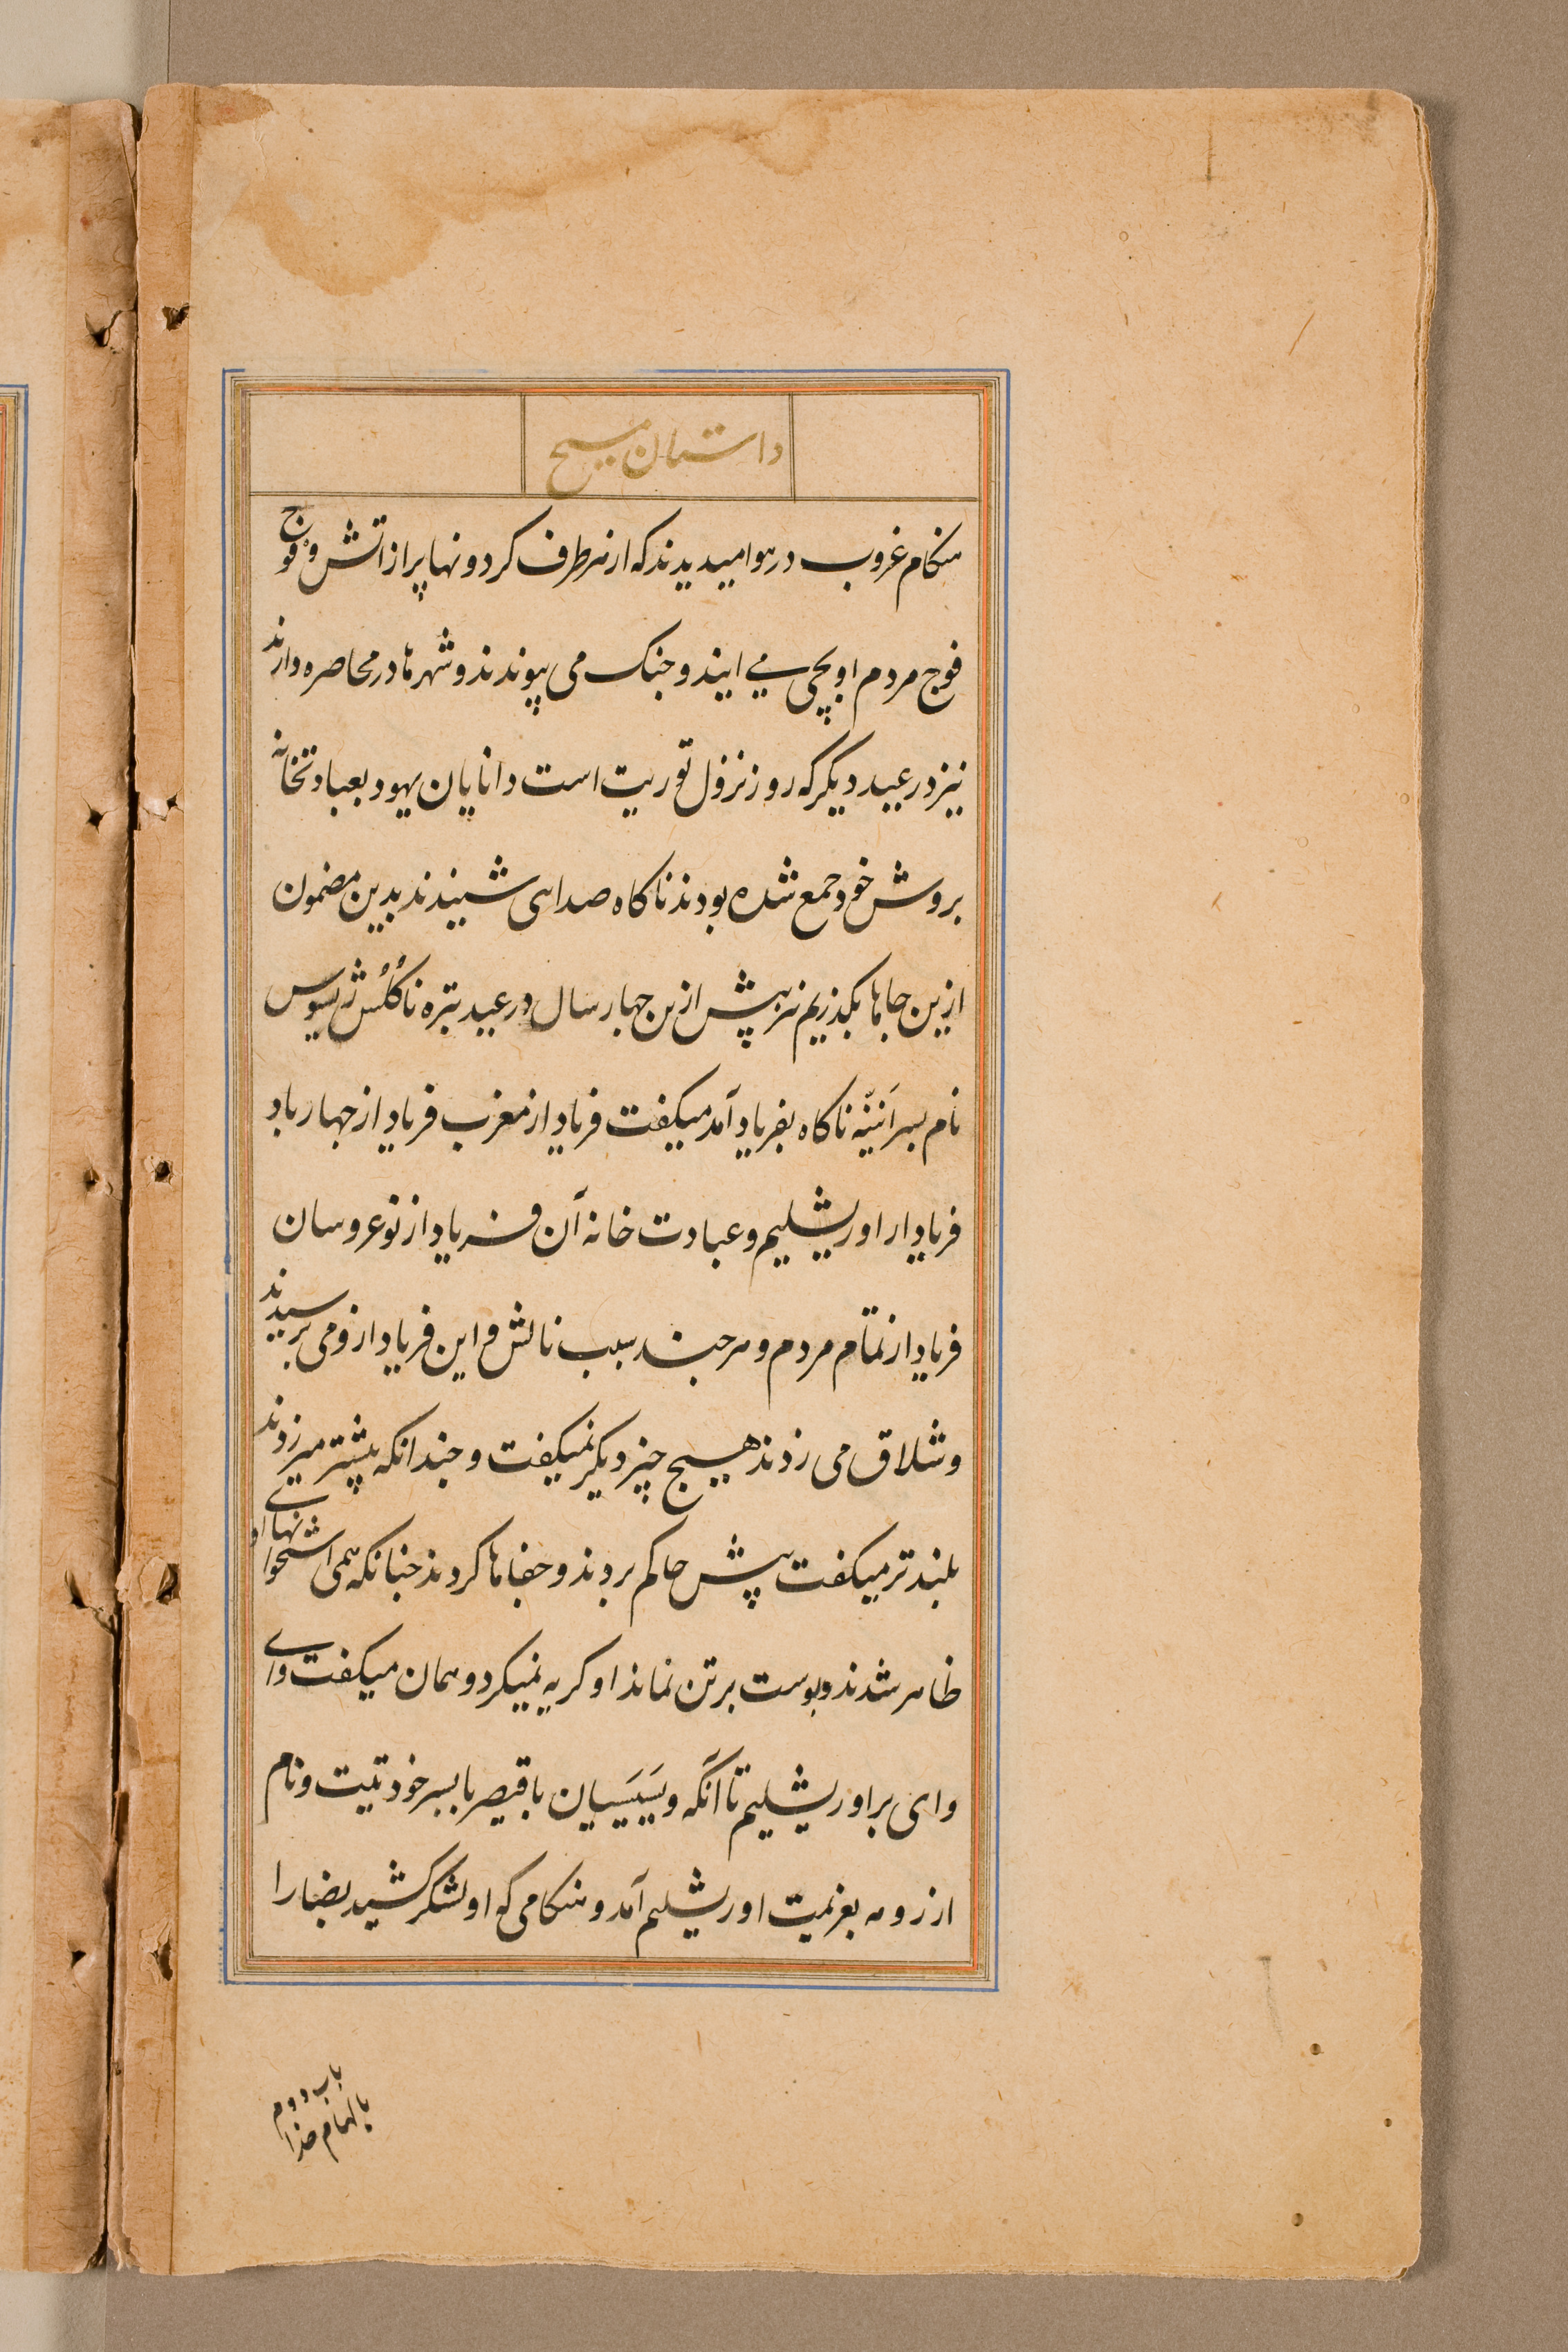 داستان مسیح
هنکام غروب در هوا میدیدند که از هر طرف کردونها پر از اتش و فوج
فوج مردم اوپچی می ایند و جنک می پیوندند و شهرها در محاصره دارند
نیز در عید دیکر که روز نزول توریت است دانایان یهود بعبادتخانه
بروش خود جمع شده بودند ناکاه صدای شنیدند بدین مضمون
ازین جاها بکذریم نیز پیش ازین چهار سال در عید تبره ناکاه کُسُ ژیسوس
نام پسر اَننیّه ناکاه بفریاد آمد میکفت فریاد از مغرب فریاد از چهار باد
فریاد از اوریشلیم و عبادت خانه آن فریاد از نو عروسان
فریاد از تمام مردم و هر چند سبب نالش و این فریاد ازو می پرسیدند
و شلاق می زدند هیچ چیز دیکر نمیکفت و چندانکه بیشتر میزدند
بلندتر میکفت پیش حاکم بردند و جفاها کردند چنانکه همی استخوانهای او
ظاهر شدند و پوست بر تن نماند او کریه نمیکرد و همان میکفت وای
وای بر اوریشلیم تا آنکه ویَسپَسیان با قیصر با پسر خود تیت و نام
از رومه بعزیمت اوریشلیم آمد و هنکامی که او لشکر کشید نصارا
باب دوم
بالهام خدا